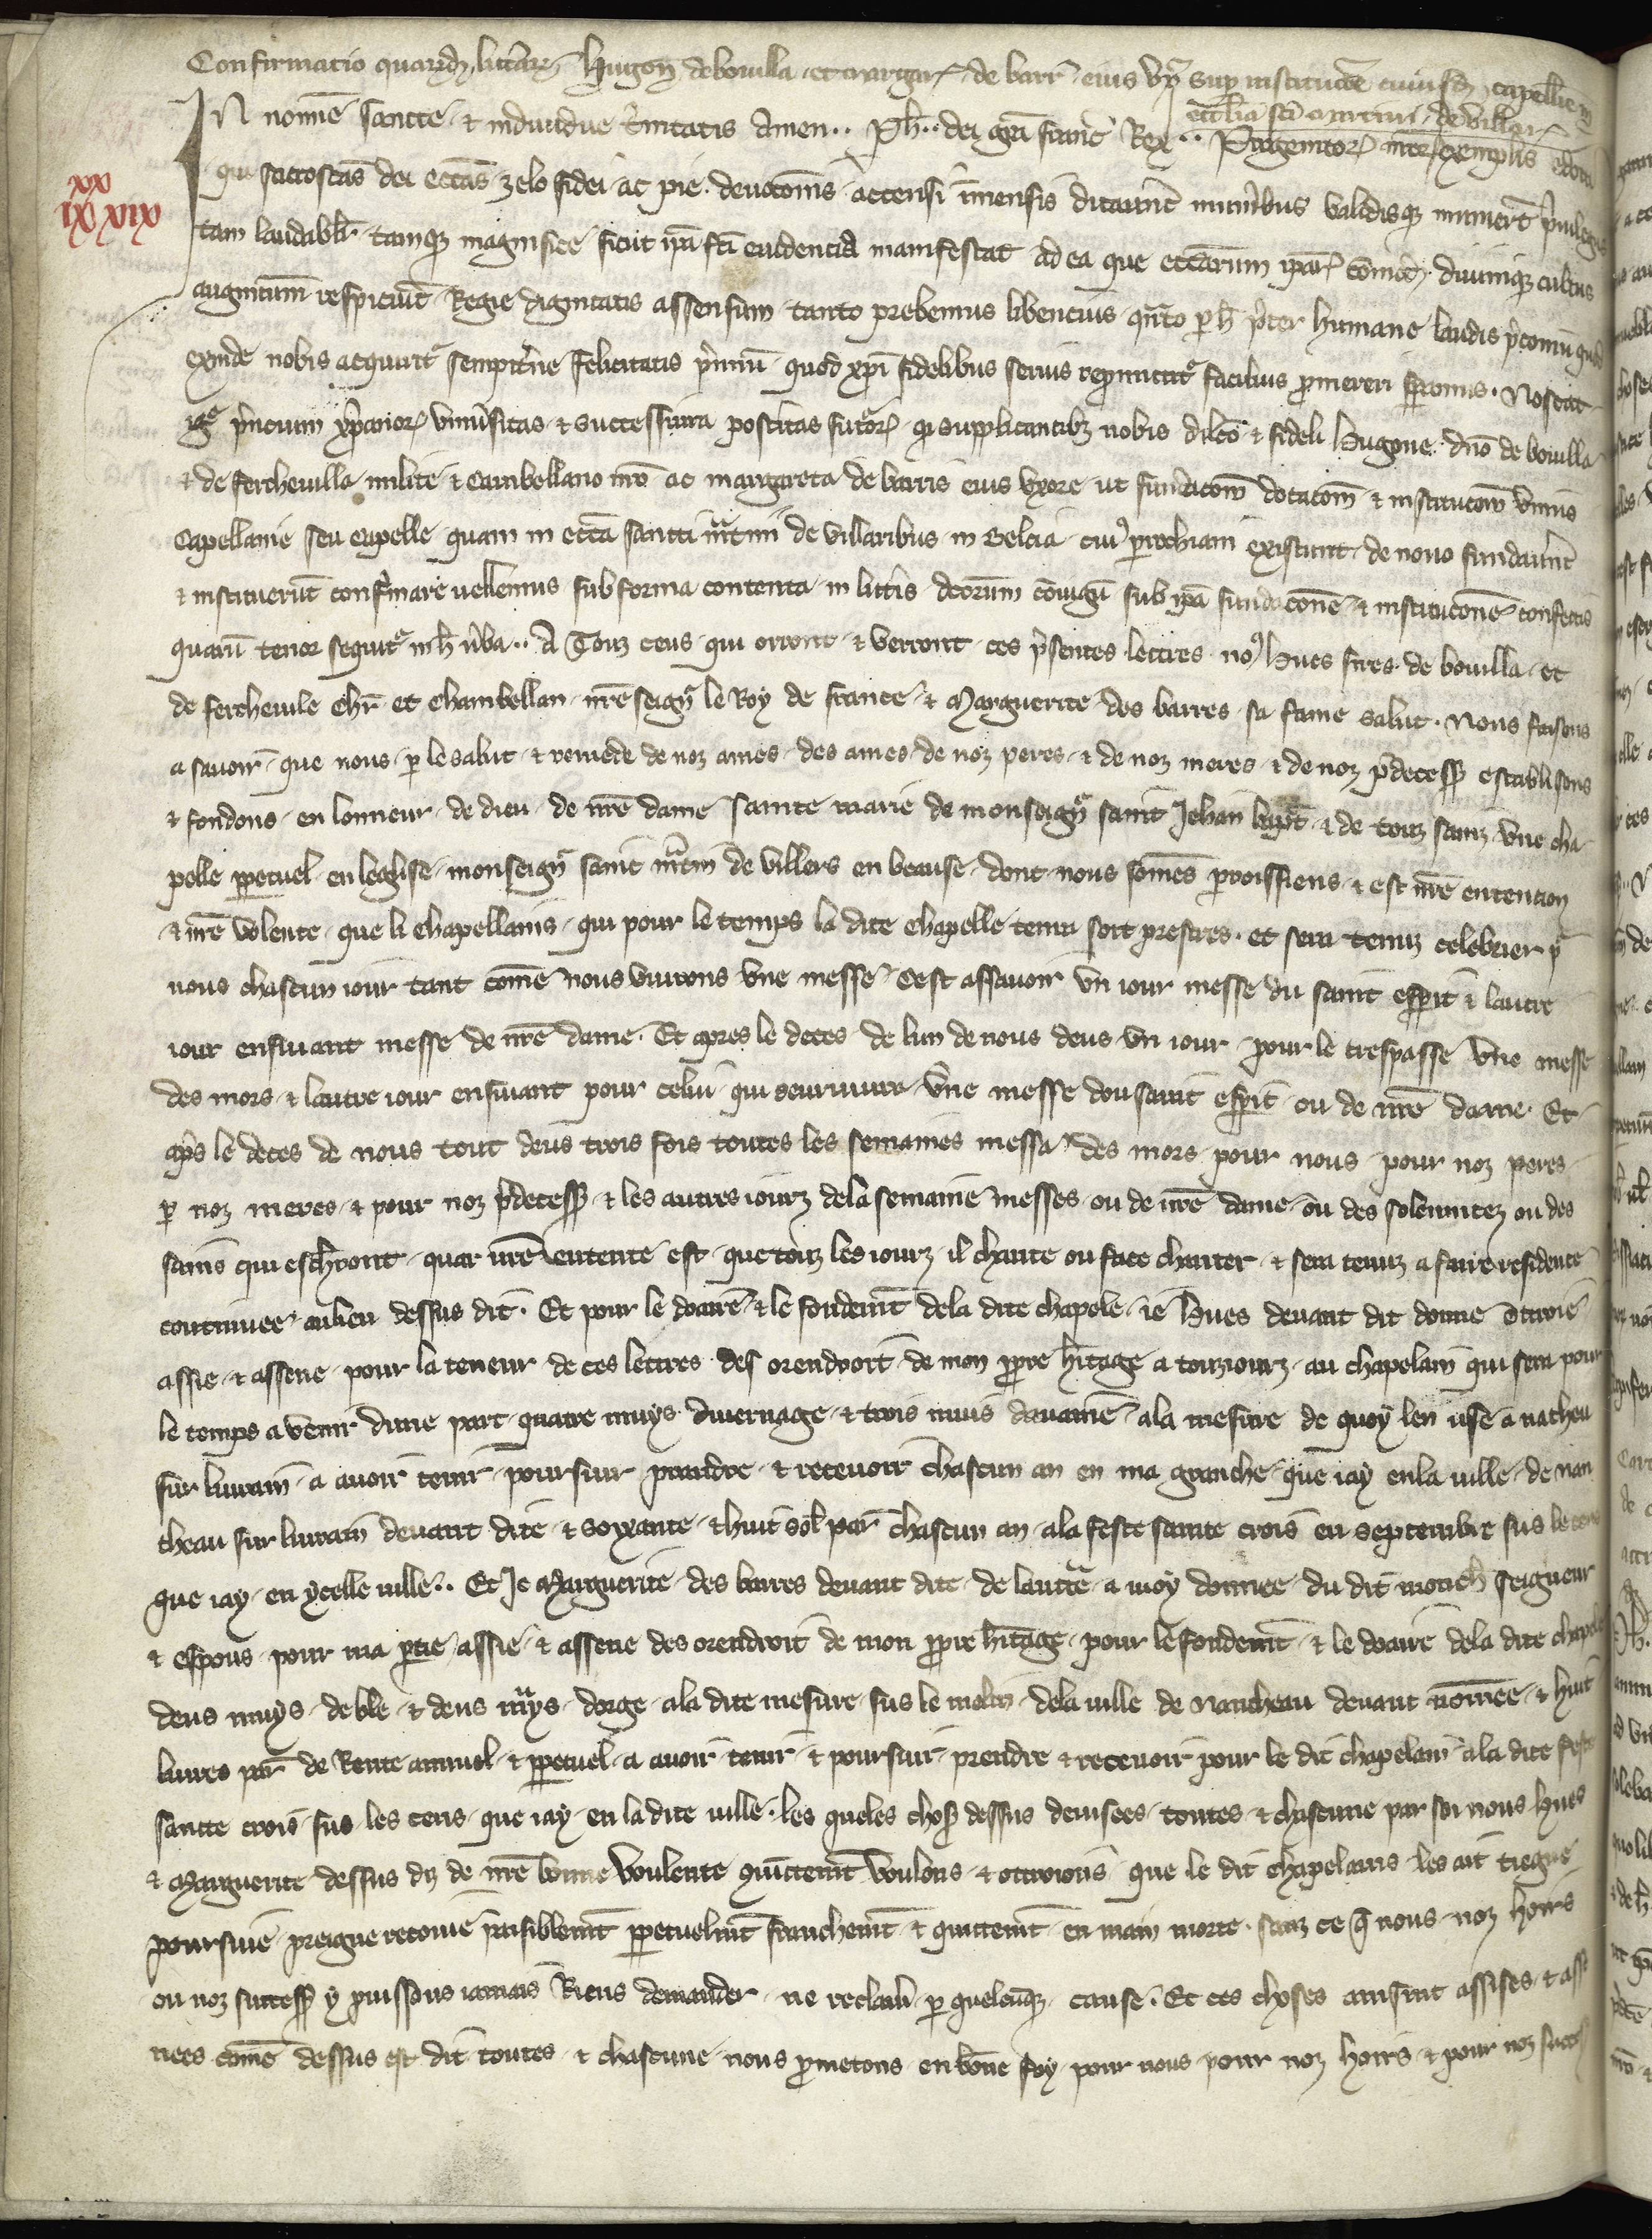 Confirmacio quarumdem litterarum Hugonis de bouilla et margarete de barris eius uxoris super institucione cuiusdem capellie in
ecclesia sancti martini de villaribus
In nomine sancte et individue trinitatis Amen.. Ph.. dei gracia francorum Rex.. Progenitorum nostrorum exemplis
xx
IX XIX
qui sacrosanctas dei ecclesias zelo fidei ac pie devocionis accensi immensis ditaverunt muneribus validisque munierunt privilegiis
tam laudabiliter tamque magnifice sicut ipsa facti evidencia manifestat ad ea que ecclesiarum ipsarum divinique cultus
augmentum respiciunt Regie dignitatis assensum tanto prebemus libencius quanto per hec preter humane laudis preconium quod
exinde nobis acquiritur sempiterne felicitatis premium quod christi fidelibus servis repromittitur facilius promereri speramus. Noscat
igitur presencium universitas et successiva posteritas futurorum quod supplicantibus nobis dilecto et fideli Hugone domino de bouilla
et de fercheuilla milite et Cambellano nostro ac margareta de barris eius uxore ut fundacionem dotacionem et institucionem unius
Capellanie seu capelle quam in ecclesia sancti martini de villaribus in Belcia cuius parrochiani existunt de novo fundaverunt
et instituerunt confirmare vellemus sub forma contenta in litteris dictorum coniugum super ipsa fundacione et institucione confectis
quarum tenor sequitur in hec verba.. A Touz ceus qui orront et verront ces presentes lettres nous hues sires de bouilla et
de fercheuile chevalier et chambellan nostre seigneur le Roy de france et Marguerite des barres sa fame salut. Nous faisons
a savoir que nous por le salut et remede de noz ames des ames de noz peres et de noz meres et de noz predecesseurs establisons
et fondons en lonneur de dieu de nostre dame sainte marie de monseigneur saint Jehan baptiste et de touz sainz une cha
pelle perpetuel en leglise monseigneur saint martin de villers en beause dont nous sommes parroissiens et est nostre entencion
et nostre volente que li chapellains qui pour le temps la dite chapelle tenra soit prestres et sera tenuz celebrer pour
nous chascun iour tant comme nous vivrons une messe Cest assavoir un iour messe du saint esperit et lautre
iour ensivant messe de nostre dame. Et apres le deces de lun de nous deus un iour pour le trespasse une messe
des mors et lautre iour ensivant pour celui qui seurvivra une messe dou saint esperit ou de nostre dame. Et
apres le deces de nous tout deus trois fois toutes les semaines messa des mors pour nous pour noz peres
por noz meres et pour noz predecesseurs et les autres iourz de la semaine messes ou de nostre dame ou des solennitez ou des
sains qui escherront quar nostre entente est que touz les iourz il chante ou face chanter et sera tenuz a faire residence
continuee ou lieu dessus dit. Et pour le doaire et le fondement de la dite chapele ie hues devant dit donne ottroie
assie et assene pour la teneur de ces lettres des orendroit de mon propre heritage a touziourz au chapelain qui sera pour
le temps a venir dune part quatre muys divernage et trois muis davaine a la mesure de quoy len use a nacheu
sur luvain a avoir tenir poursivir prandre et recevoir chascun an en ma granche que iay en la ville de nan
cheau sur luvain devant dite et soixante et huit sol par chascun an a la feste sainte crois en septembre sus le cens
que iay en ycelle ville.. Et Je Marguerite des barres devant dite de lauctorite a moy donnee du dit monseigneur seigneur
et espous pour ma partie assie et assene des orendroit de mon propre heritage pour le fondement et le doaire de la dite chapele
deus muys de ble et deus muys dorge a la dite mesure sus le molin de la ville de Nancheau devant nommee et huit
livres par de Rente annuel et perpetuel a avoir tenir et poursivir prendre et recevoir pour le dit chapelain a la dite feste
sainte crois sus les cens que iay en la dite ville. les queles choses dessus devisees toutes et chascune par soi nous hues
et Marguerite dessus diz de nostre bonne voulente quictement voulons et ottroions que le dit chapelains les ait tiegne
poursieue preigne recoive paisiblement perpetuelment franchement et quittement en main morte sanz ce que nous noz hoirs
ou noz successeurs y puissons iamais Riens demander ne reclamer por quelcunque cause. Et ces choses ainsint assises et asse
nees comme dessus est dit toutes et chascune nous prometons en bonne foy pour nous pour noz hoirs et pour noz success